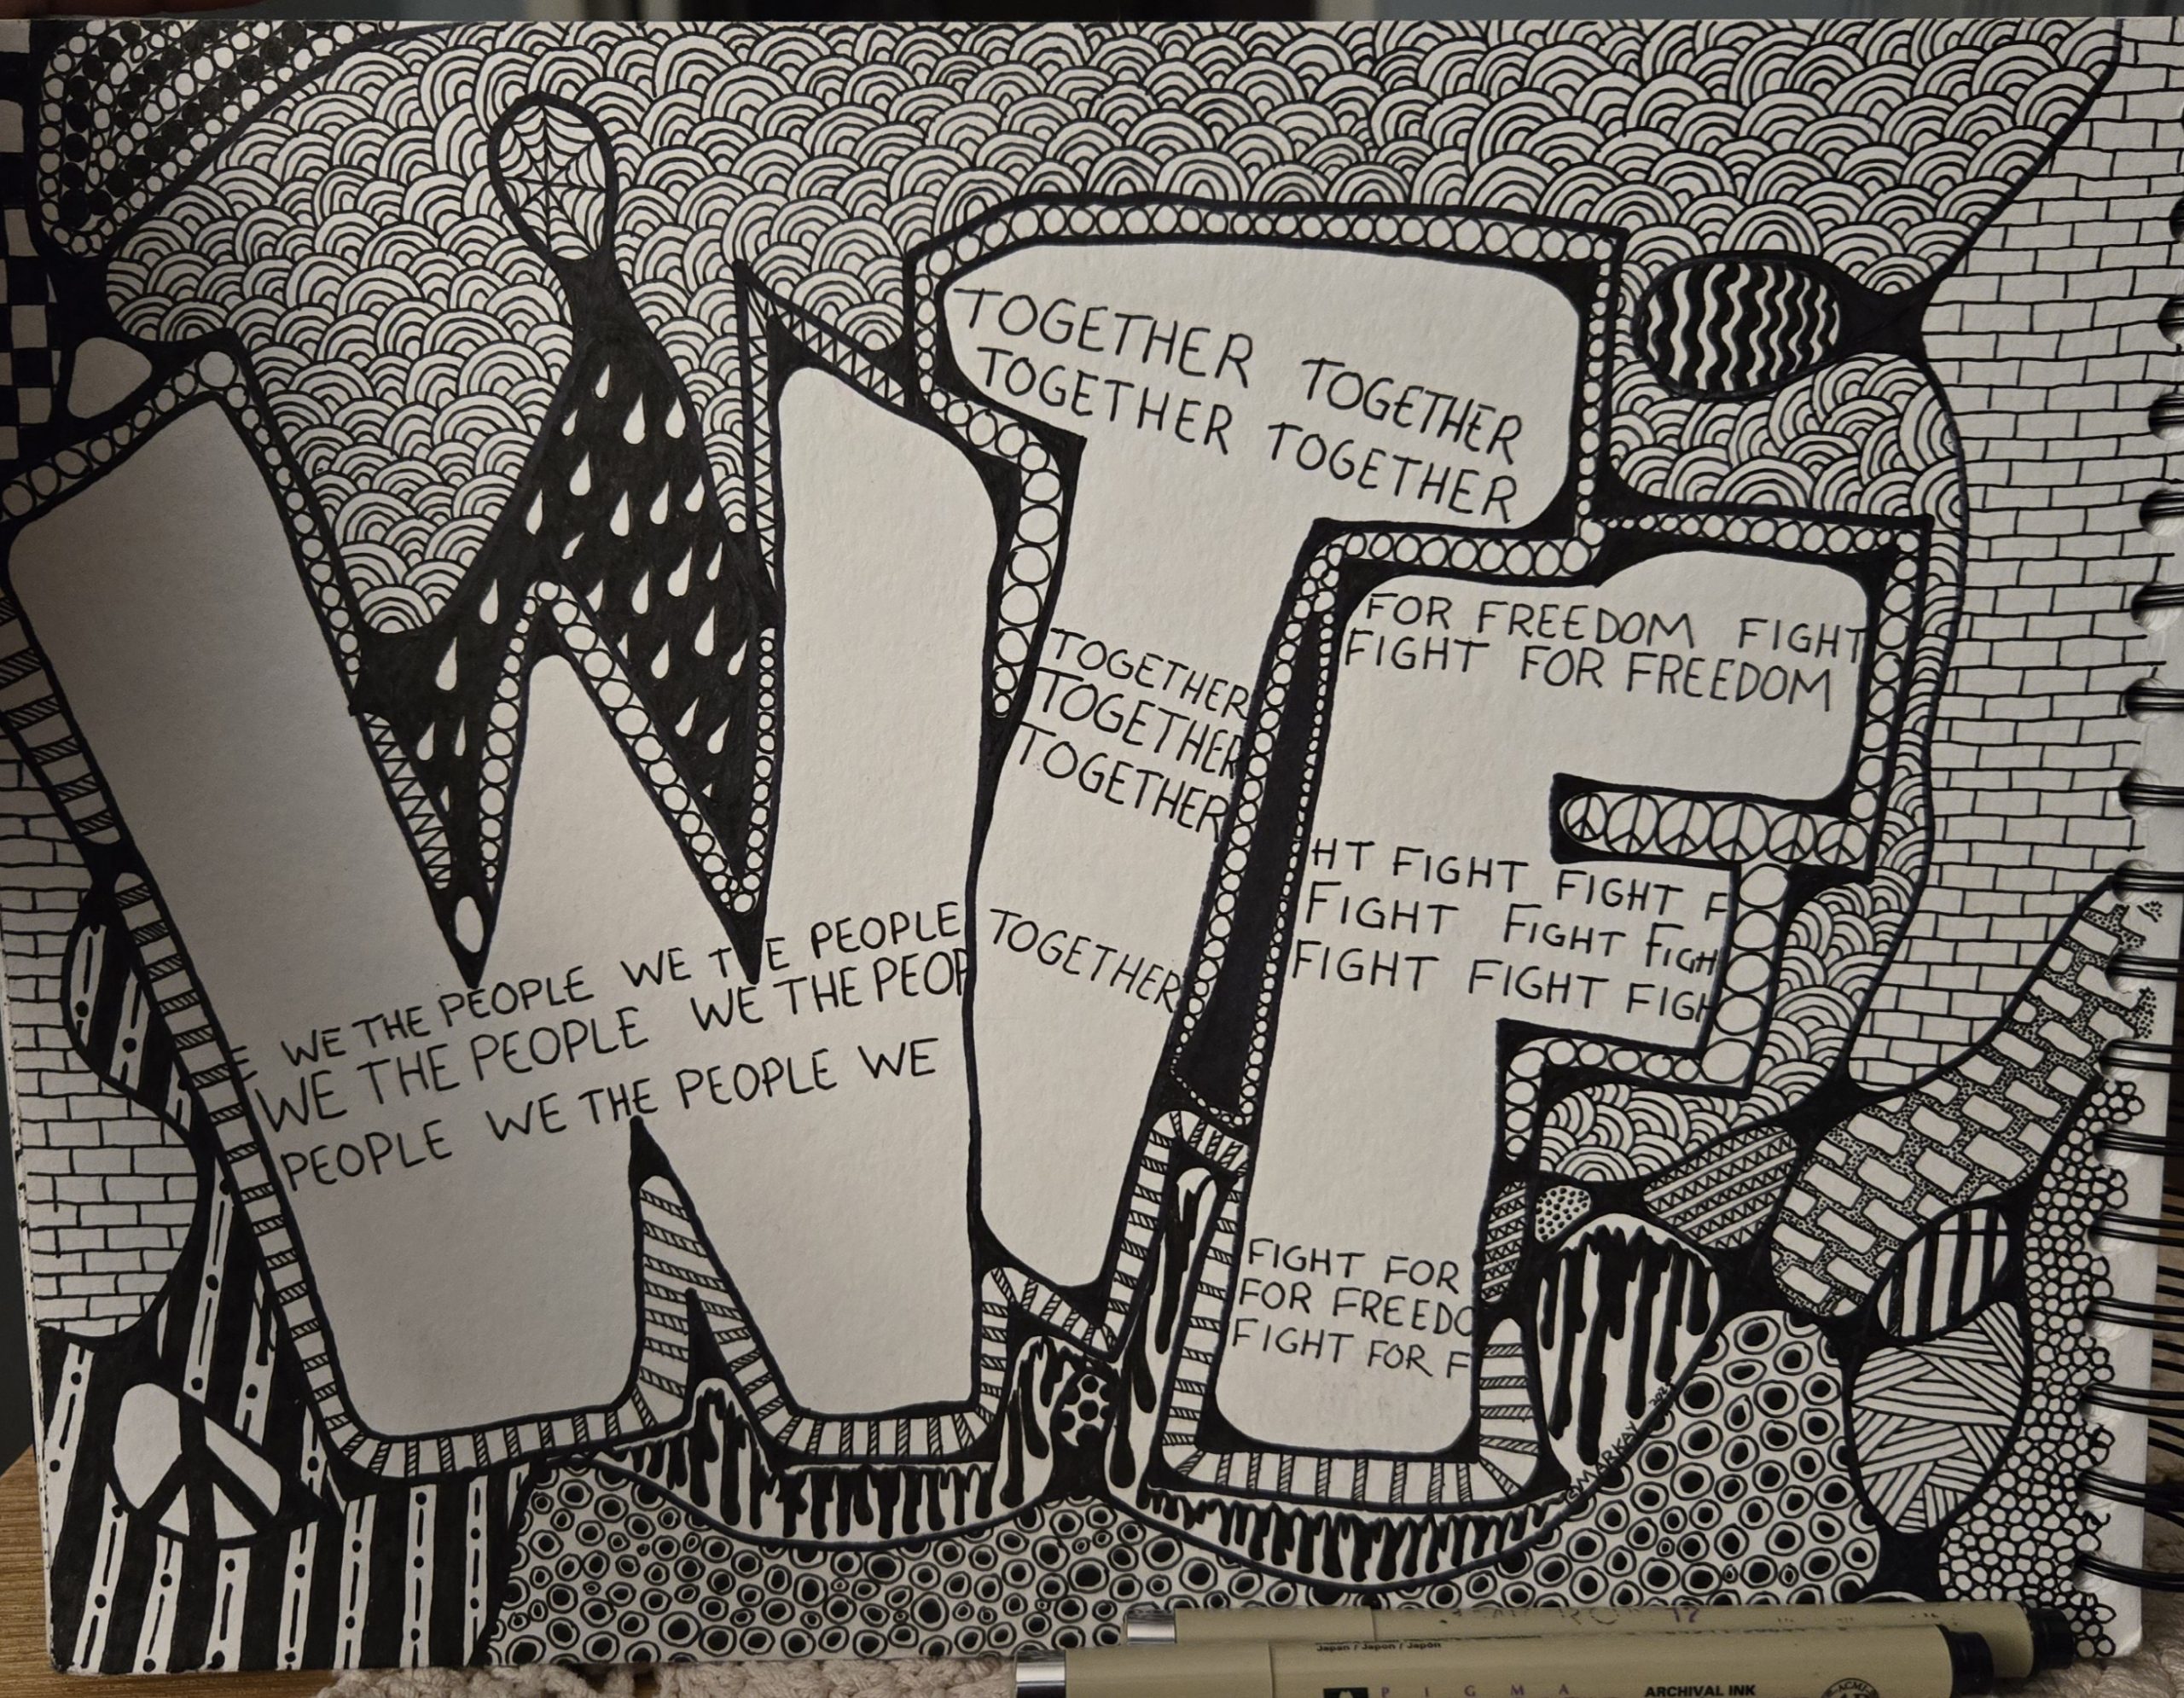 WTF
E WE THE PEOPLE WE THE PEOPLE
WE THE PEOPLE WE THE PEOP
PEOPLE WE THE PEOPLE WE
TOGETHER TOGETHER
TOGETHER TOGETHER
TOGETHER
TOGETHER
TOGETHER
TOGETHER
FOR FREEDOM FIGHT
FIGHT FOR FREEDOM
HT FIGHT FIGHT F
FIGHT FIGHT FIGH
FIGHT FIGHT FIGH
FIGHT FOR
FOR FREEDO
FIGHT FOR F
SMARKAY
Japan / Japon / Japón
PIGMA ARCHIVAL INK